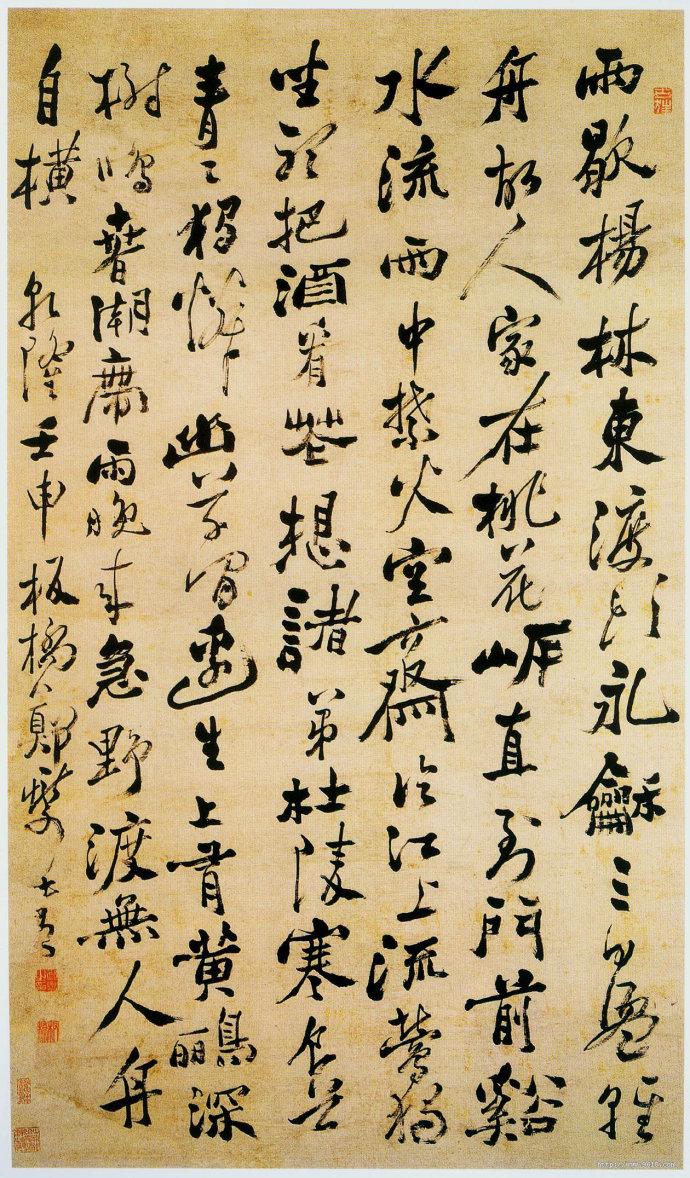 雨歇楊林東渡頭永龢三日盪輕
舟故人家在桃花岸直到門前谿
水流雨中禁火空齋冷江上流鶯獨
坐聽把酒看花想諸弟杜陵寒食草
青〻獨憐幽草澗邊生上有黃鸝深
樹鳴春潮帶雨晚來急野渡無人舟
自橫 乾隆壬申板橋鄭燮